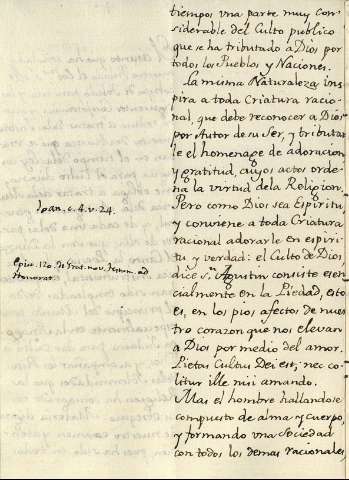 tiempos vna parte muy con-
siderable del Culto publico
que se ha tributado a Dios por
todos los Pueblos y Naciones.
La misma Naturaleza ins-
pira a toda Criatura racio-
nal, que debe reconocer a Dios
por Autor de su Ser, y tributar-
le el homenage de adoracion,
y gratitud, cuyos actos orde-
na la virtud dela Religion.
Pero como Dios sea Espiritu
y conviene a toda Criatura
racional adorarle en espiri-
tu y verdad: el Culto de Dios,
dice Sn. Agustin consiste esen-
cialmente en la Piedad, esto
es, en los pios afectos de nues-
tro corazon que nos elevan
a Dios por medio del amor.
Pietas Cultus Dei est, nec co-
litur ille nisi amando.
Mas el hombre hallandose
compuesto de alma y cuerpo,
y formando vna Sociedad
con todos los demas racionales
Joan. c. 4. v. 24.
Epist. 120. de Grat. nov. testam. ad
Honorat.